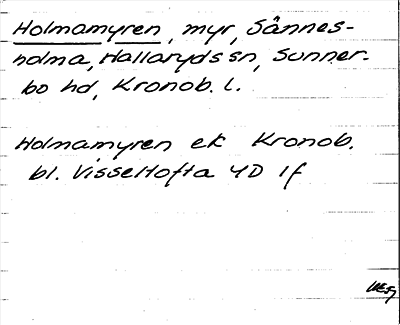 Holmamyren, myr, Sånnes-
holma, Hallaryds sn, Sunner-
bo hd, Kronob. l.
Holmamyren ek Kronob.
bl. Visseltofta 4D 1f